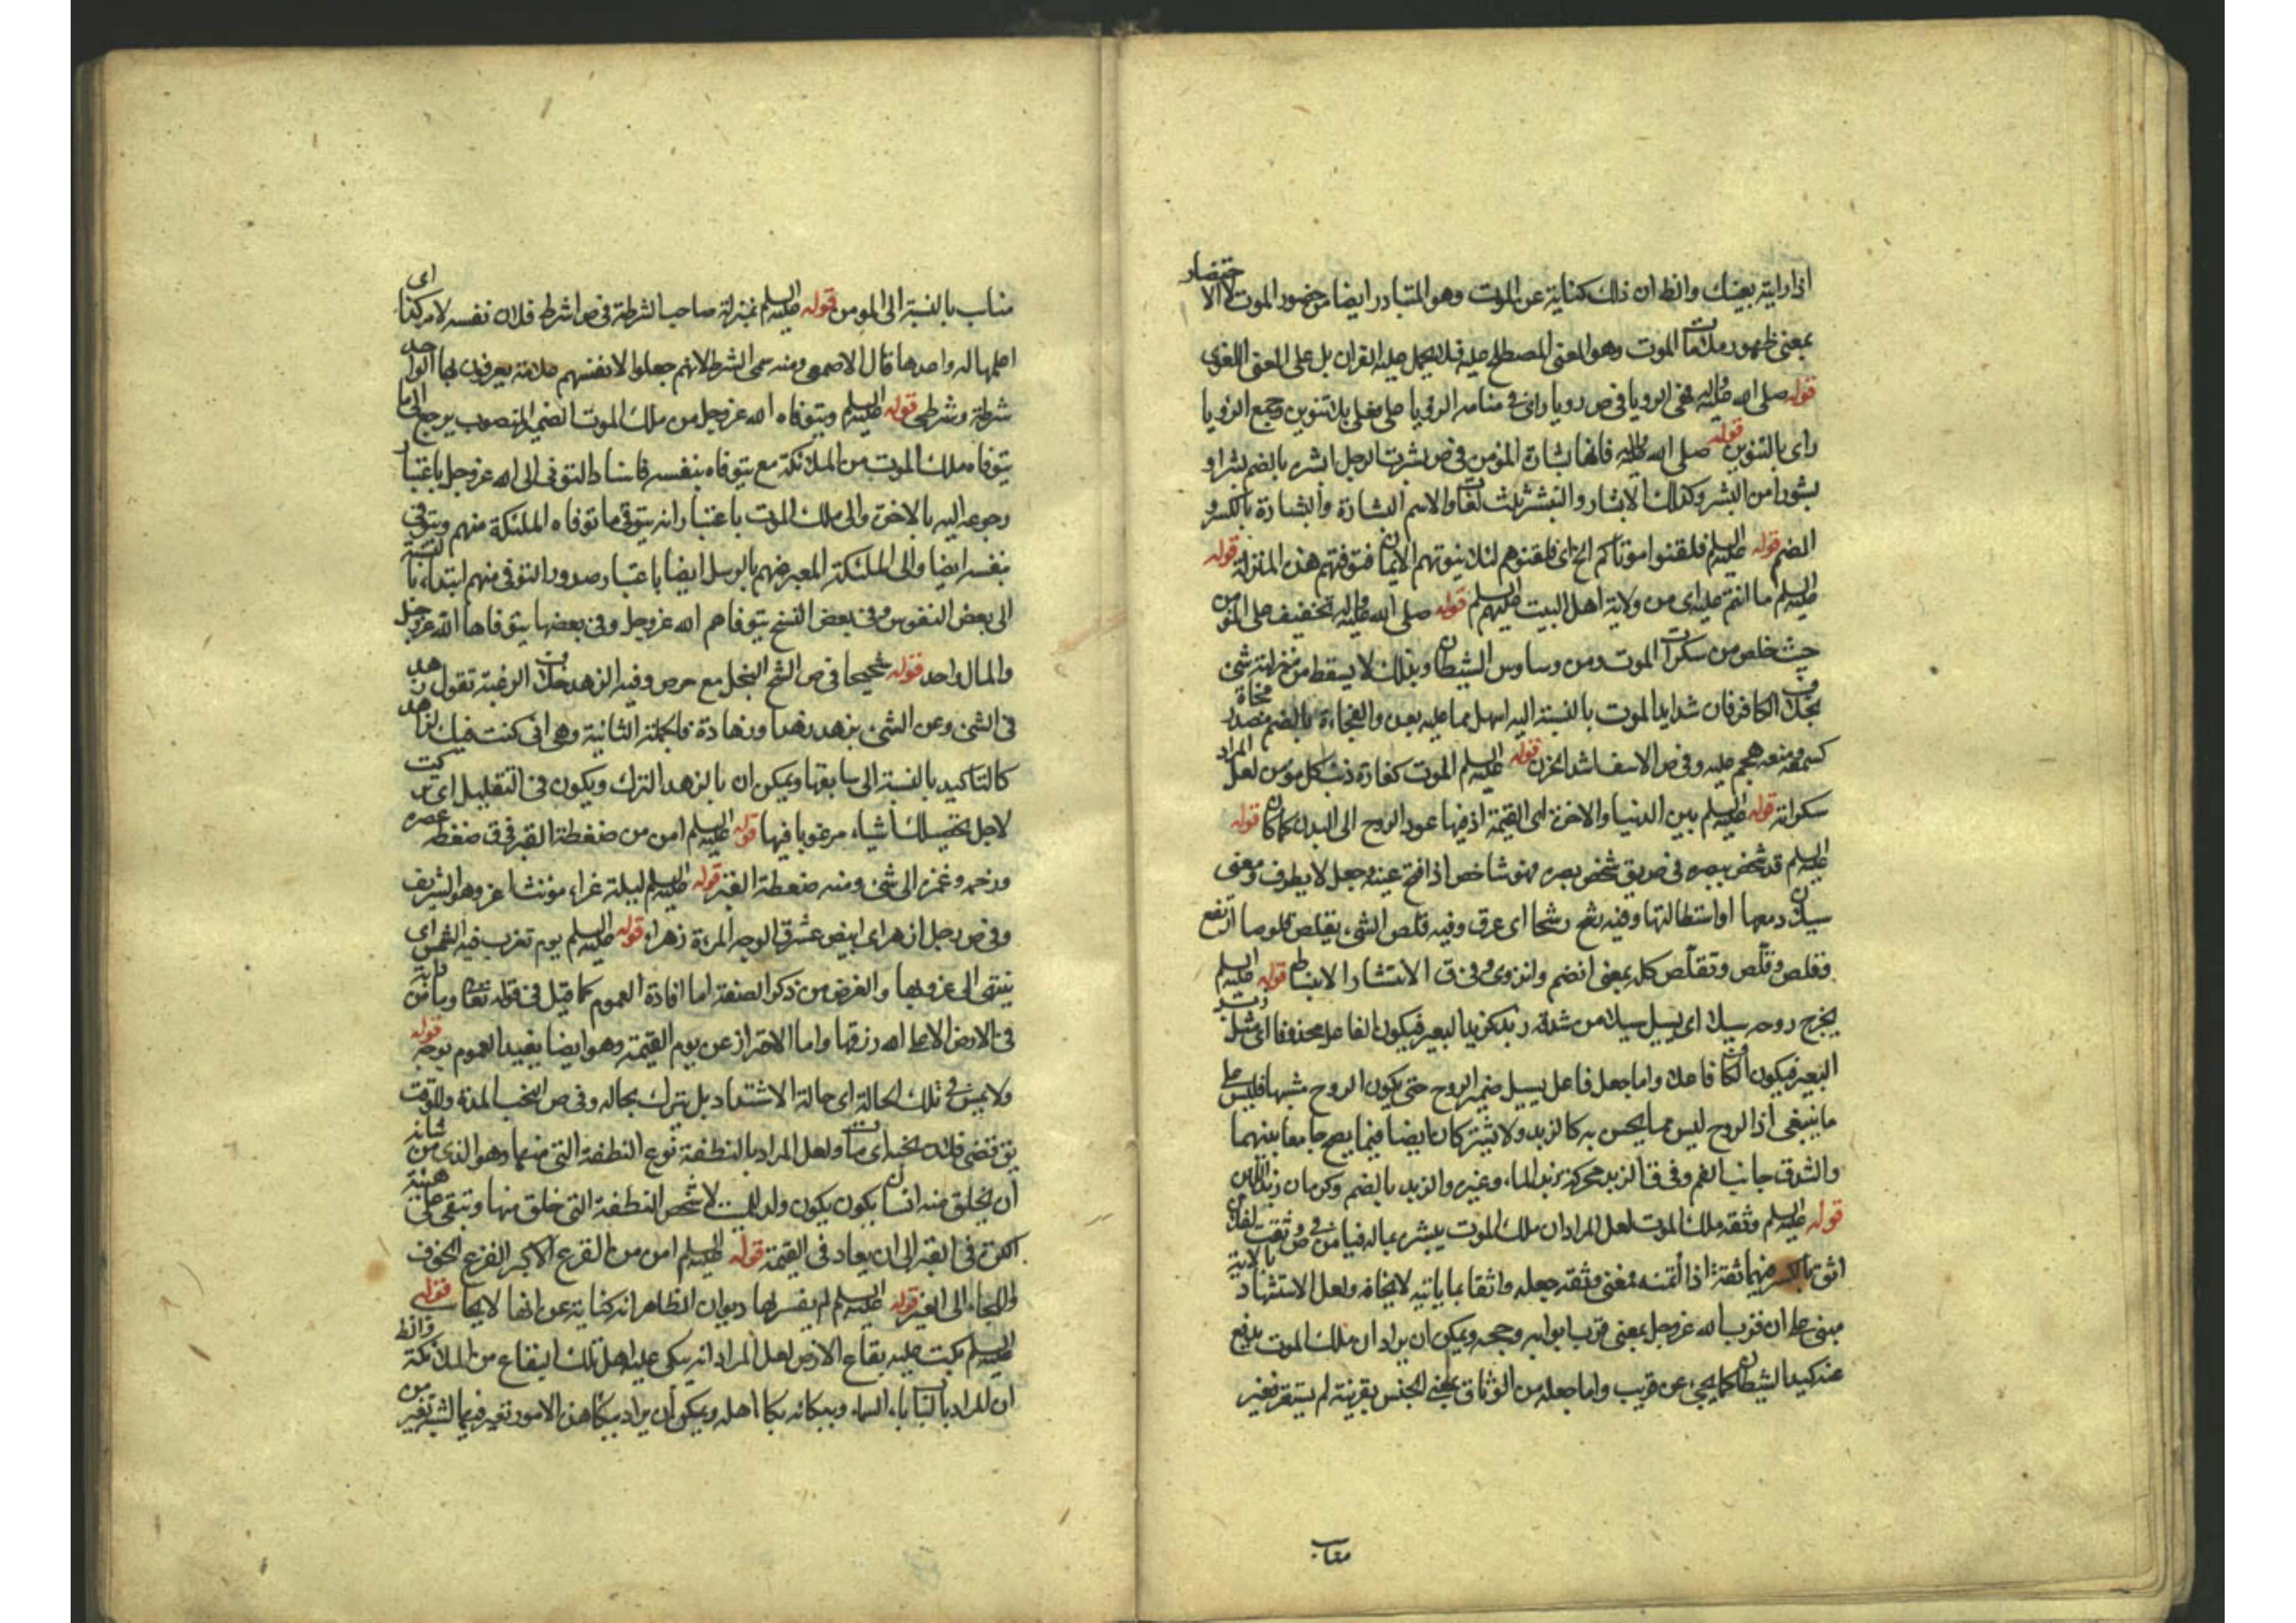 اذا رايته بعينك والظ ان ذلك كناية عن الموت وهو المتبادر ايضا من حضور الموت لا الاحتضار
بمعنى ظهور علامات الموت وهو المعنى المصطلح عليه فلا يحمل عليه القران بل على المعنى اللغوى
قوله صلى الله عليه واله هى الرويا فى ص رويا راى فى منامه الرؤيا على فعلى بلا تنوين وجمع الرؤيا
راى بالتنوين قوله صلى الله عليه واله فانها بشارة المؤمن فى ص بشرت الرجل ابشره بالضم بشرا و
بشورا من البشر وكذلك الابشار والتبشير ثلث لغات والاسم البشارة والبشارة بالكسر و
الضم قوله عليه السلم فلقنوا موتاكم الخ اى فلقنوهم لئلا يفوتهم الايمان فتوقهم هذه المنزلة قوله
عليه السلم ما انتم عليه اى من ولاية اهل البيت عليهم السلم قوله صلى الله عليه واله تخفيف على المؤمن
حيث خلص من سكرات الموت ومن وساوس الشيطان وبذلك لا يسقط من منزلته شئ
بخلاف الكافر فان شدايد الموت بالنسبة اليه اسهل مما عليه بعده والفجاءة بالضم مصدر فجاءة
كسمعه ومنعه هجم عليه وفى ص الاسف اشد الحزن قوله عليه السلم الموت كفارة ذنب كل مؤمن لعل المراد
سكراته قوله عليه السلم بين الدنيا والاخرة اى القيمة اذ فيها عود الروح الى البدن كما كان قوله
عليه السلم قد شخص ببصره فى ص يق شخص بصره فهو شاخص اذا فتح عينه وجعل لا يطرف ومعنى
سيلان دمعها او استطالتها وفيه رشح رشحا اى عرق وفيه قلص الشئ يقلص قلوصا ارتفع
فقلص وقلّص وتقلّص كله بمعنى انضم وانزوى وفى ق الانتشار الانبساط قوله عليه السلم
يخرج روحه سيلا اى يسيل سيلا من شدقه زبد كزبد البعير فيكون الفاعل محذوفا اى مثل زبد
البعير فيكون الكاف فاعلا واما جعل فاعل يسيل ضمير الروح حتى يكون الروح مشبها فليس على
ما ينبغى اذ الروح ليس مما يحس به كالزبد ولا يشتركان ايضا فيما يصح جامعا بينهما
والشدق جانب الفم وفى ق الزبد محركة زبد الماء وغيره والزبد بالضم وكرمان زبد اللبن
قوله عليه السلم وثقه ملك الموت لعل المراد ان ملك الموت يبشره بماله فيامن فى ص وثقت بفلان
اثق بالكسر فيهما ثقة اذا ائتمنه فمعنى وثقه جعله واثقا بما ياتيه لا يخافه ولعل الاستشهاد بالاية
مبنى على ان قرب الله عز وجل بمعنى قرب ابوابه وحججه ويمكن ان يراد ان ملك الموت يدفع
عنه كيد الشيطان كما يجئ عن قريب واما جعله من الوثاق بمعنى الحبس بقرينة لم يستقر فغير
مناسب
مناسب بالنسبة الى المومن قوله عليه السلم بمنزلة صاحب الشرطة فى ص اشرط فلان نفسه لامر كذا اى
اعلمها له واعدها قال الاصمعى ومنه سمى الشرط لانهم جعلوا لانفسهم علامة يعرفون بها الواحد
شرطة وشرطى قوله عليه السلم ويتوفاه الله عز وجل من ملك الموت الضمير المنصوب يرجع الى ما
يتوفاه ملك الموت من الملائكة مع يتوفاه بنفسه فاسناد التوفى الى الله عز وجل باعتبار
رجوعه اليه بالاخرة والى ملك الموت باعتبار انه يتوفى ما توفاه الملئكة منهم ويتوفى
بنفسه ايضا والى الملئكة المعبر عنهم بالرسل ايضا باعتبار صدور التوفى منهم ابتداء بالنسبة
الى بعض النفوس وفى بعض النسخ يتوفاهم الله عز وجل وفى بعضها يتوفاها الله عز وجل
والمال واحد قوله شحيحا فى ص الشح البخل مع حرص وفيه الزهد خلاف الرغبة تقول زهد
فى الشئ وعن الشئ يزهد زهدا وزهادة فالجملة الثانية وهى انى كنت فيك لزاهدا
كالتاكيد بالنسبة الى سابقها ويمكن ان يراد بالزهد الترك ويكون فى التقليل اى تركت
لاجل تحصيلك اشياء مرغوبا فيها قوله عليه السلم امن من ضغطة القبر فى ق ضغطه عصره
وزحمه وغمزه الى شئ ومنه ضغطة القبر قوله عليه السلم ليلة غراء مؤنث اغر وهو الشريف
وفى ص رجل ازهر اى ابيض مشرق الوجه المرءة زهراء قوله عليه السلم يوم تغرب فيه الشمس اى
ينتهى الى غروبها والغرض من ذكر الصفة اما افادة العموم كما قيل فى قوله تعا وما من دابة
فى الارض الا على الله رزقها واما الاحتراز عن يوم القيمة وهو ايضا يفيد العموم بوجه قوله
ولا يمس فى تلك الحالة اى حالة الاشتداد بل يترك بحاله وفى ص النحب المدة والوقت
يق قضى فلان نحبه اى مات ولعل المراد بالنطفة نوع النطفة التى منها وهو الذى من شانه
ان يخلق منه انسان يكون يكون ولد لا شخص النطفة التى خلق منها وتبقى على هيئة
الكرة فى القبر الى ان يعاد فى القيمة قوله عليه السلم امن من الفزع الاكبر الفزع الخوف
والالتجاء الى الغير قوله عليه السلم لم ينشر لها ديوان الظاهر انه كناية عن انها لا يحاسب قوله
عليه السلم بكت عليه بقاع الارض لعل المراد انه يبكى عليه اهل تلك البقاع من الملائكة والظ
ان المراد بالباب باب السماء وببكائه بكاء اهله ويمكن ان يراد ببكاء هذه الامور تغير فيها لشبه تغير من